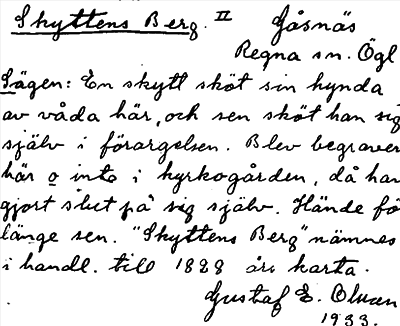 Skyttens Berg. II Gåsnäs
Regna sn. Ögl
Sägen: En skytt sköt sin hynda
av våda här, och sen sköt han sig
själv i förargelsen. Blev begraven
här o inte i kyrkogården, då han
gjort slut på sig själv. Hände fö
länge sen. "Skyttens Berg" nämnes
i handl. till 1828 års karta.
Gustaf E.
1933.